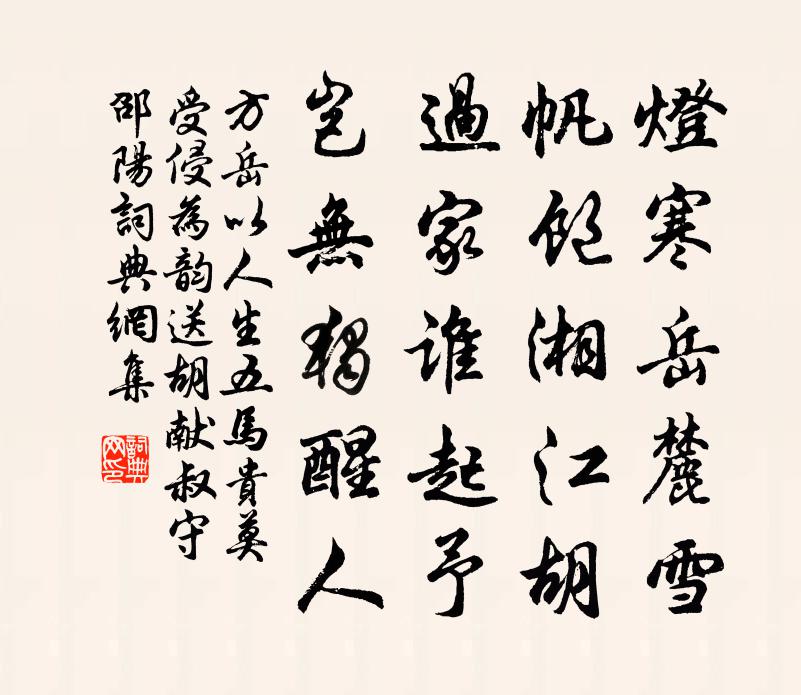 燈寒岳麓雪
帆飽湘江胡
過家誰起予
豈無獨醒人
方岳以人生五馬貴莫
受侵為韵送胡献叔守
邵陽詞典網集
詞典网印